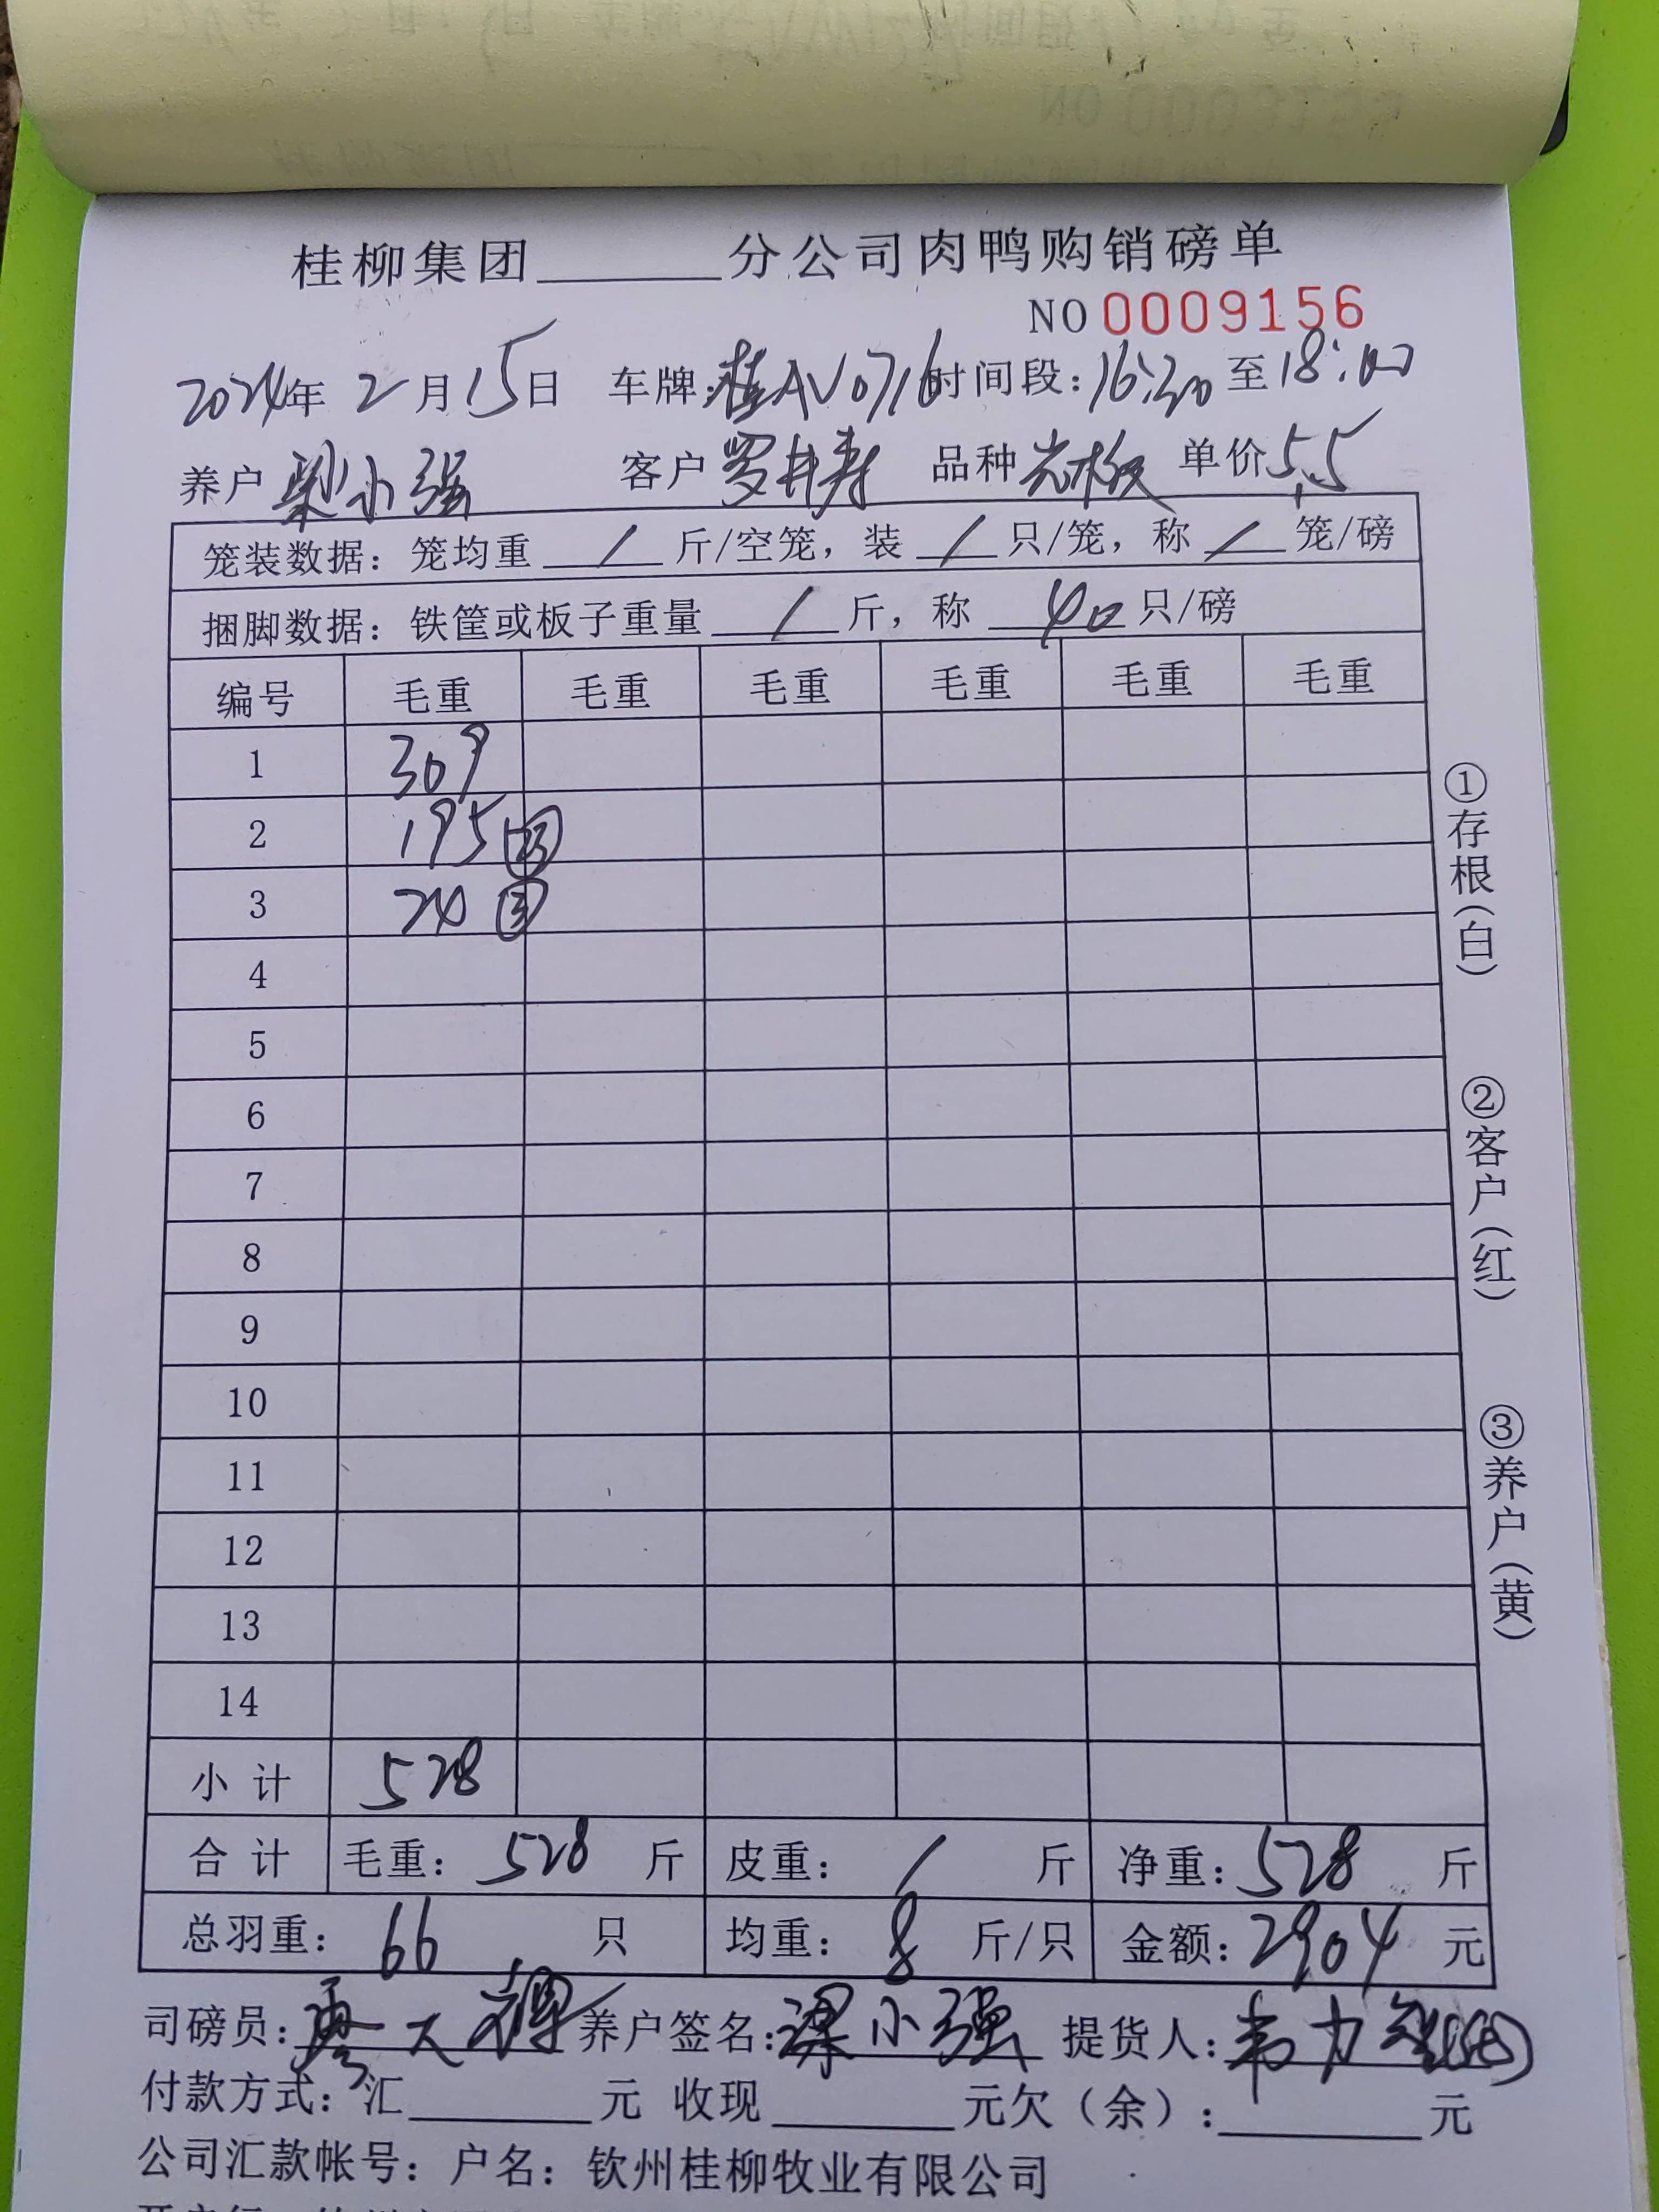 桂柳集团______分公司肉鸭购销磅单
NO 0009156
2024年 2月15日 车牌:桂AV0716 时间段:16:30至18:00
养户 梁小强 客户 罗井寿 品种 光板 单价 5.5
笼装数据: 笼均重 / 斤/空笼, 装 / 只/笼, 称 / 笼/磅
捆脚数据: 铁筐或板子重量 / 斤, 称 40 只/磅
编号 毛重 毛重 毛重 毛重 毛重 毛重
1 309
2 195
3 24 ③
4
5
6
7
8
9
10
11
12
13
14
小计 528
合计 毛重: 528 斤 皮重: / 斤 净重: 528 斤
总羽重: 66 只 均重: 8 斤/只 金额: 2904 元
①存根(白)
②客户(红)
③养户(黄)
司磅员: 养户签名: 梁小强 提货人: 韦力
付款方式: 汇______元 收现______元欠(余):______元
公司汇款帐号: 户名: 钦州桂柳牧业有限公司